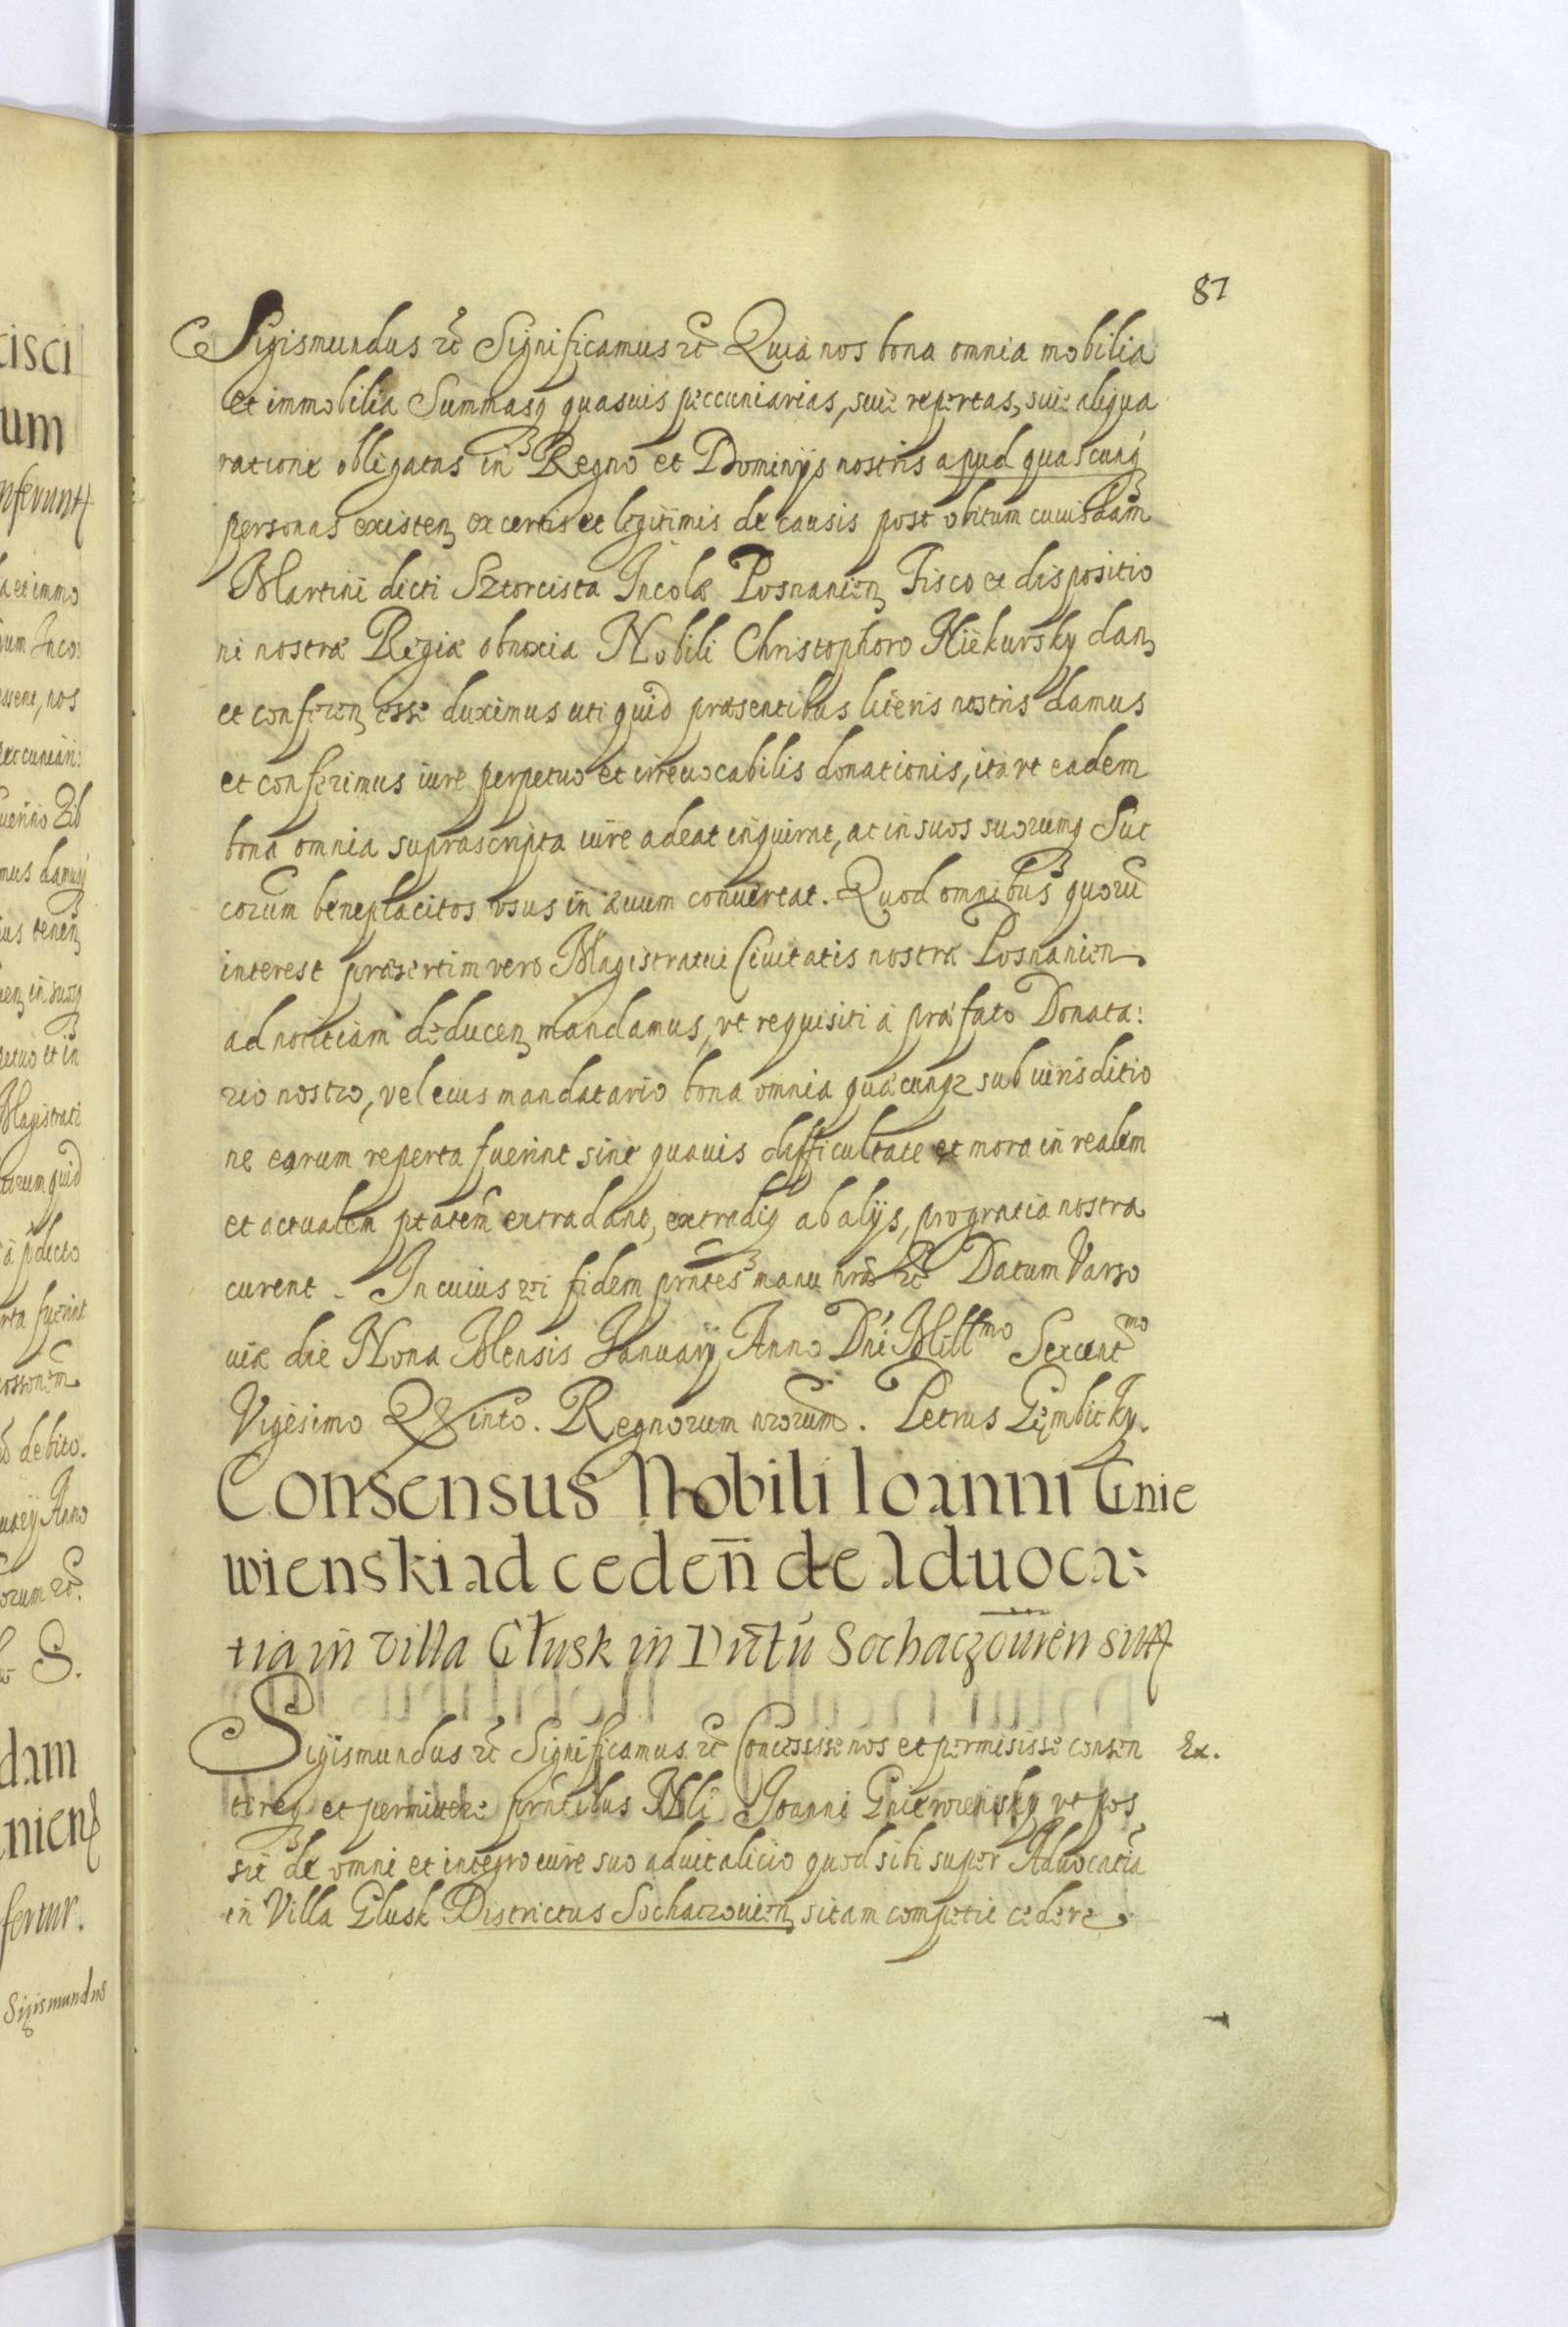 87
Sigismundus etc Significamus etc Quia nos bona omnia mobilia
et immobilia Summasq quasuis peccuniarias, siue repertas, siue aliqua
ratione obligatas in Regno et Dominijs nostris apud quascunq
personas existen ex certis et legitimis de causis post obitum cuiusdam
Martini dicti Sztorcista Incolæ Posnanien Fisco et dispositio
ni nostræ Regiæ obnoxia Nobili Christophoro Niekursky dan
et conferen esse duximus uti quid præsentibus literis nostris damus
et conferimus iure perpetuo et irreuocabilis donationis, ita vt eadem
bona omnia suprascripta iure adeat inquirat, ac in suos suorumq Suc
corum beneplacitos vsus in æuum conuertat. Quod omnibus quorū
interest præsertim vero Magistratui Ciuitatis nostræ Posnanien
ad notitiam deducen mandamus, vt requisiti à præfato Donata:
rio nostro, vel eius mandatario bona omnia quæcunqz sub iurisditio
ne earum reperta fuerint sine quauis difficultate et mora in realem
et actualem ptatem extradant, extradiq ab alijs, pro gratia nostra
curent. In cuius rei fidem prntes manu nra etc Datum Varso
uiæ die Nona Mensis Januarij Anno Dni Mill<sup>mo</sup> Sexcent<sup>mo</sup>
Vigesimo Quinto. Regnorum nrorum. Petrus Gembicky.
Consensus Nobili Ioanni Gnie
wienski ad ceden̄ de Aduoca:
tia in villa Głusk in Dn̄tū Sochaczouien sitta
Sigismundus etc Significamus etc Concessisse nos et permisisse consen
tireq et permittere prntibus Nbli Joanni Gniewiensky vt pos
sit de omni et integro iure suo aduitalicio quod sibi super Aduocatiā
in Villa Glusk Districtus Sochaczouien sitam competit cedere
Ex.